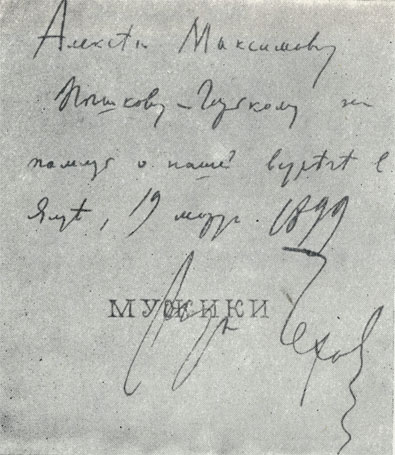 Алексѣю Максимовичу
Пѣшкову-Горькому на
память о нашей встрѣчѣ в
Ялтѣ, 19 марта 1899
МУЖИКИ
Антон Чехов